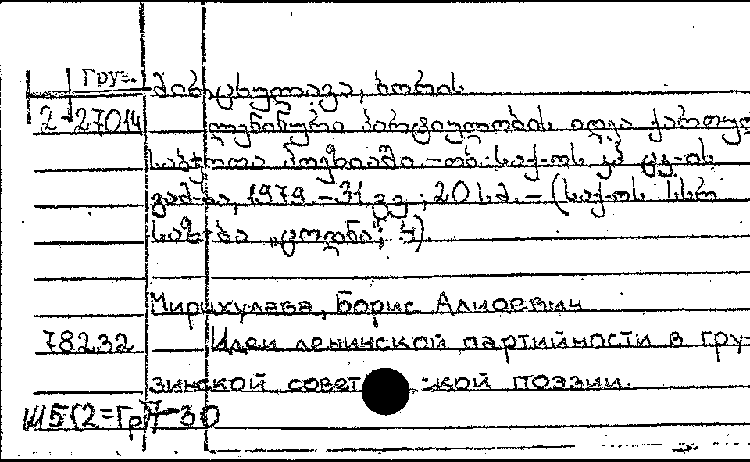 Груз.
მირცხულავა, ბორის
2-27014
ლენინური პარტიულობის იდეა ქართულ
საბჭოთა პოეზიაში. – თბ.: საქ-ოს კპ ცკ-ის
გამ-ბა, 1979. – 31 გვ.; 20 სმ. – (საქ-ოს სსრ
საზ-ბა „ცოდნა“; 4).
Борис
78232 Идеи ленинской партийности в гру-
зинской совет ской поэзии.
Ш5(2=Гр)7-30